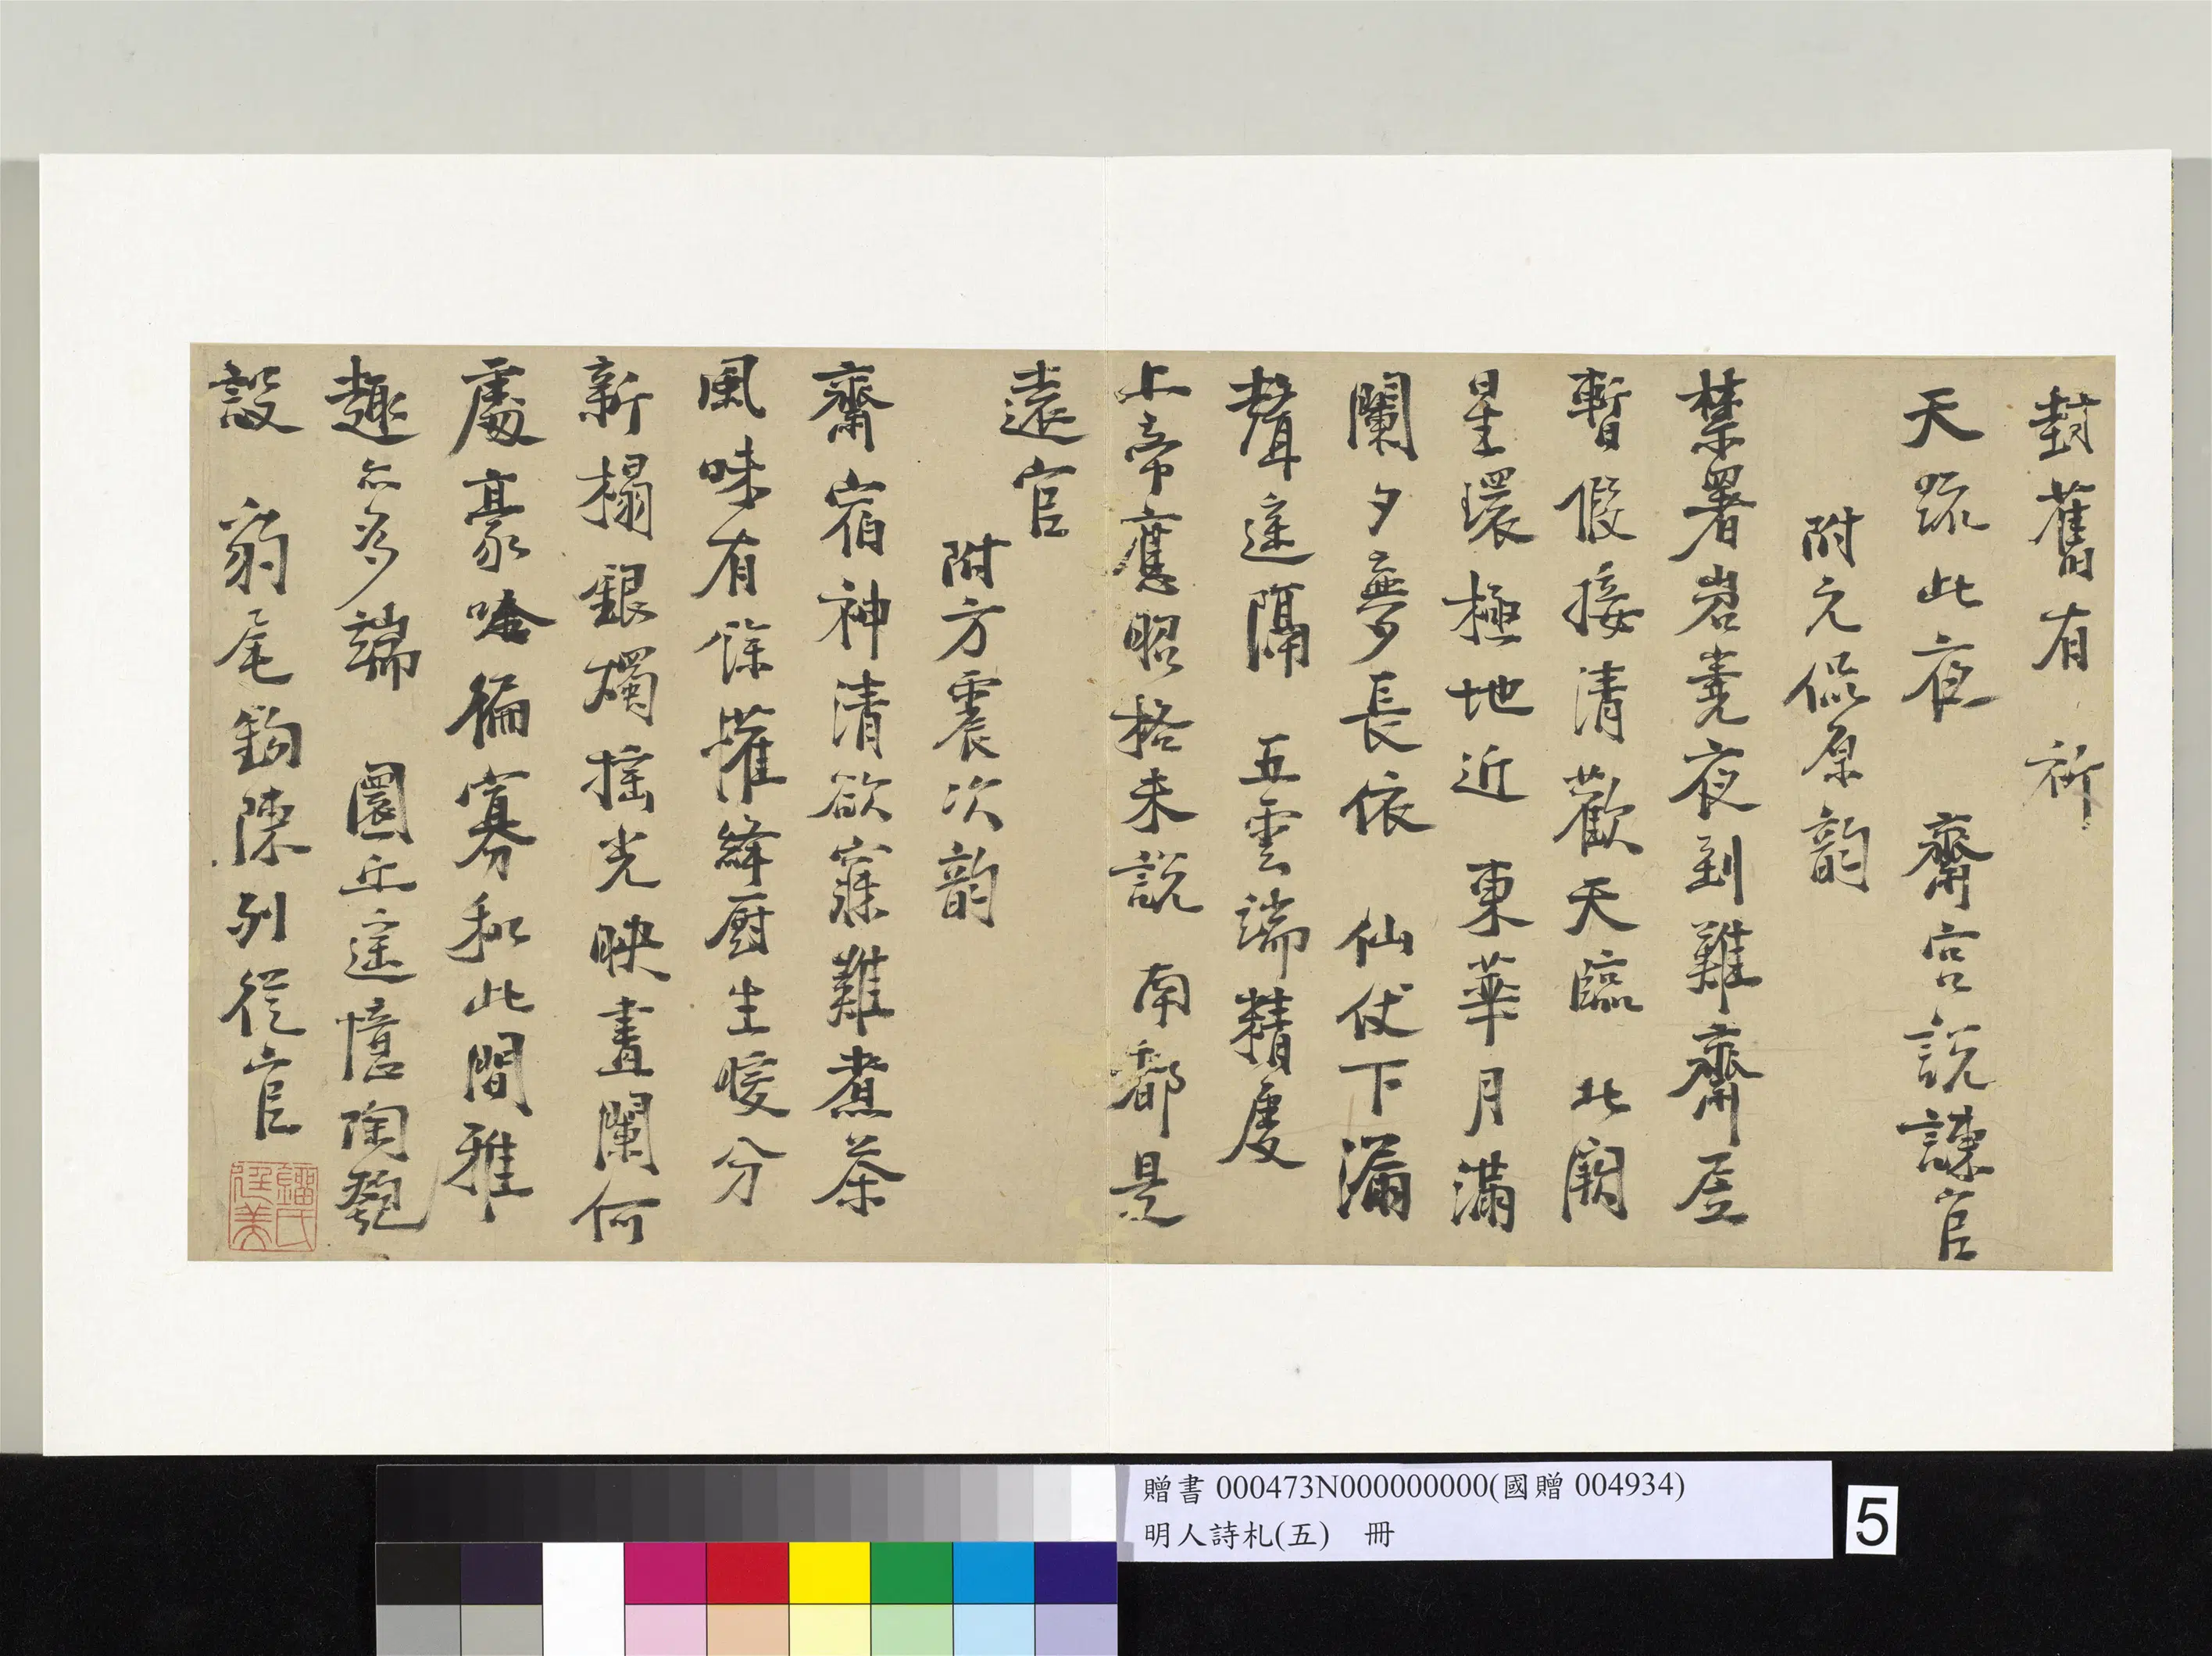 封舊有 祈
天疏此夜 齋宮説諫官
附元侃原韵
禁署岧嶤夜到難齋居
暫假接清歡天臨北闕
星環極地近東華月滿
闌夕夢長依仙仗下漏
聲遥隔五雲端精虔
上帝應昭格未説南郊是
遠官
附方震次韵
齋宿神清欲寐難煮茶
風味有餘懽絳厨生暖分
新榻銀燭揺光映畫闌何
處豪吟徧寡和此間雅
趣亦多端圜丘遥憶陶匏
設豹尾鈎陳列從官
贈書 000473N000000000(國贈 004934)
明人詩札(五) 冊
5